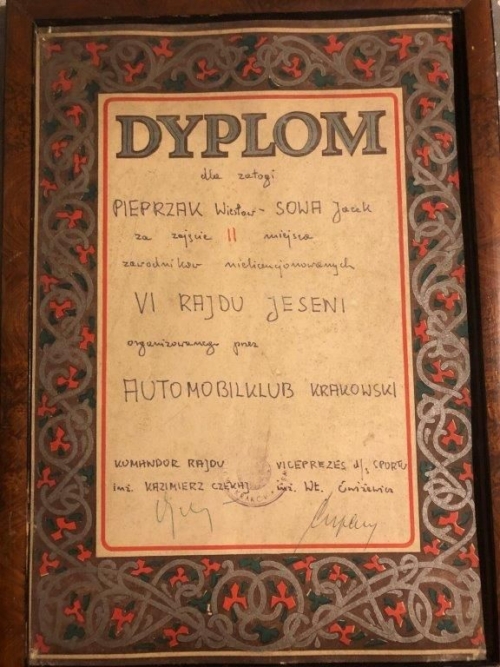 DYPLOM
dla załogi
PIEPRZAK Wiesław - SOWA Jacek
za zajęcie II miejsca
zawodników nielicencjonowanych
VI RAJDU JESENI
organizowanego przez
AUTOMOBILKLUB KRAKOWSKI
KOMANDOR RAJDU
VICEPREZES d/s SPORTU
inż. KAZIMIERZ CZEKAJ
inż. Wł.